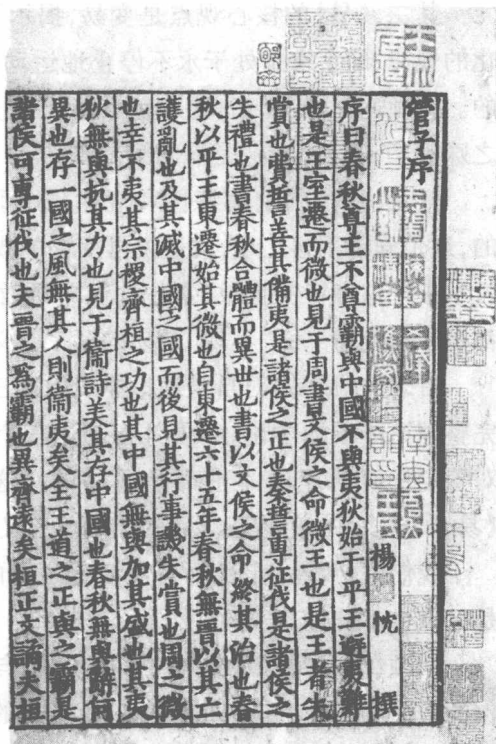 管子序
楊忱撰
序曰春秋尊王不尊霸與中國不與夷狄始于平王避夷難
也是王室遷而微也見于周書文侯之命微王也是王者失
賞也費誓善其備夷是諸侯之正也秦誓專征伐是諸侯之
失禮也書春秋合體而異世也書以文侯之命終其治也春
秋以平王東遷始其微也自東遷六十五年春秋無晉以其亡
護亂也及其滅中國之國而後見其行事譏失賞也周之微
也幸不夷其宗稷齊桓之功也其中國無與加其盛也其夷
狄無與抗其力也見于衞詩美其存中國也春秋無與辭何
異也存一國之風無其人則衞夷矣全王道之正與之霸是
諸侯可專征伐也夫晉之為霸也異齊遠矣桓正文譎夫桓